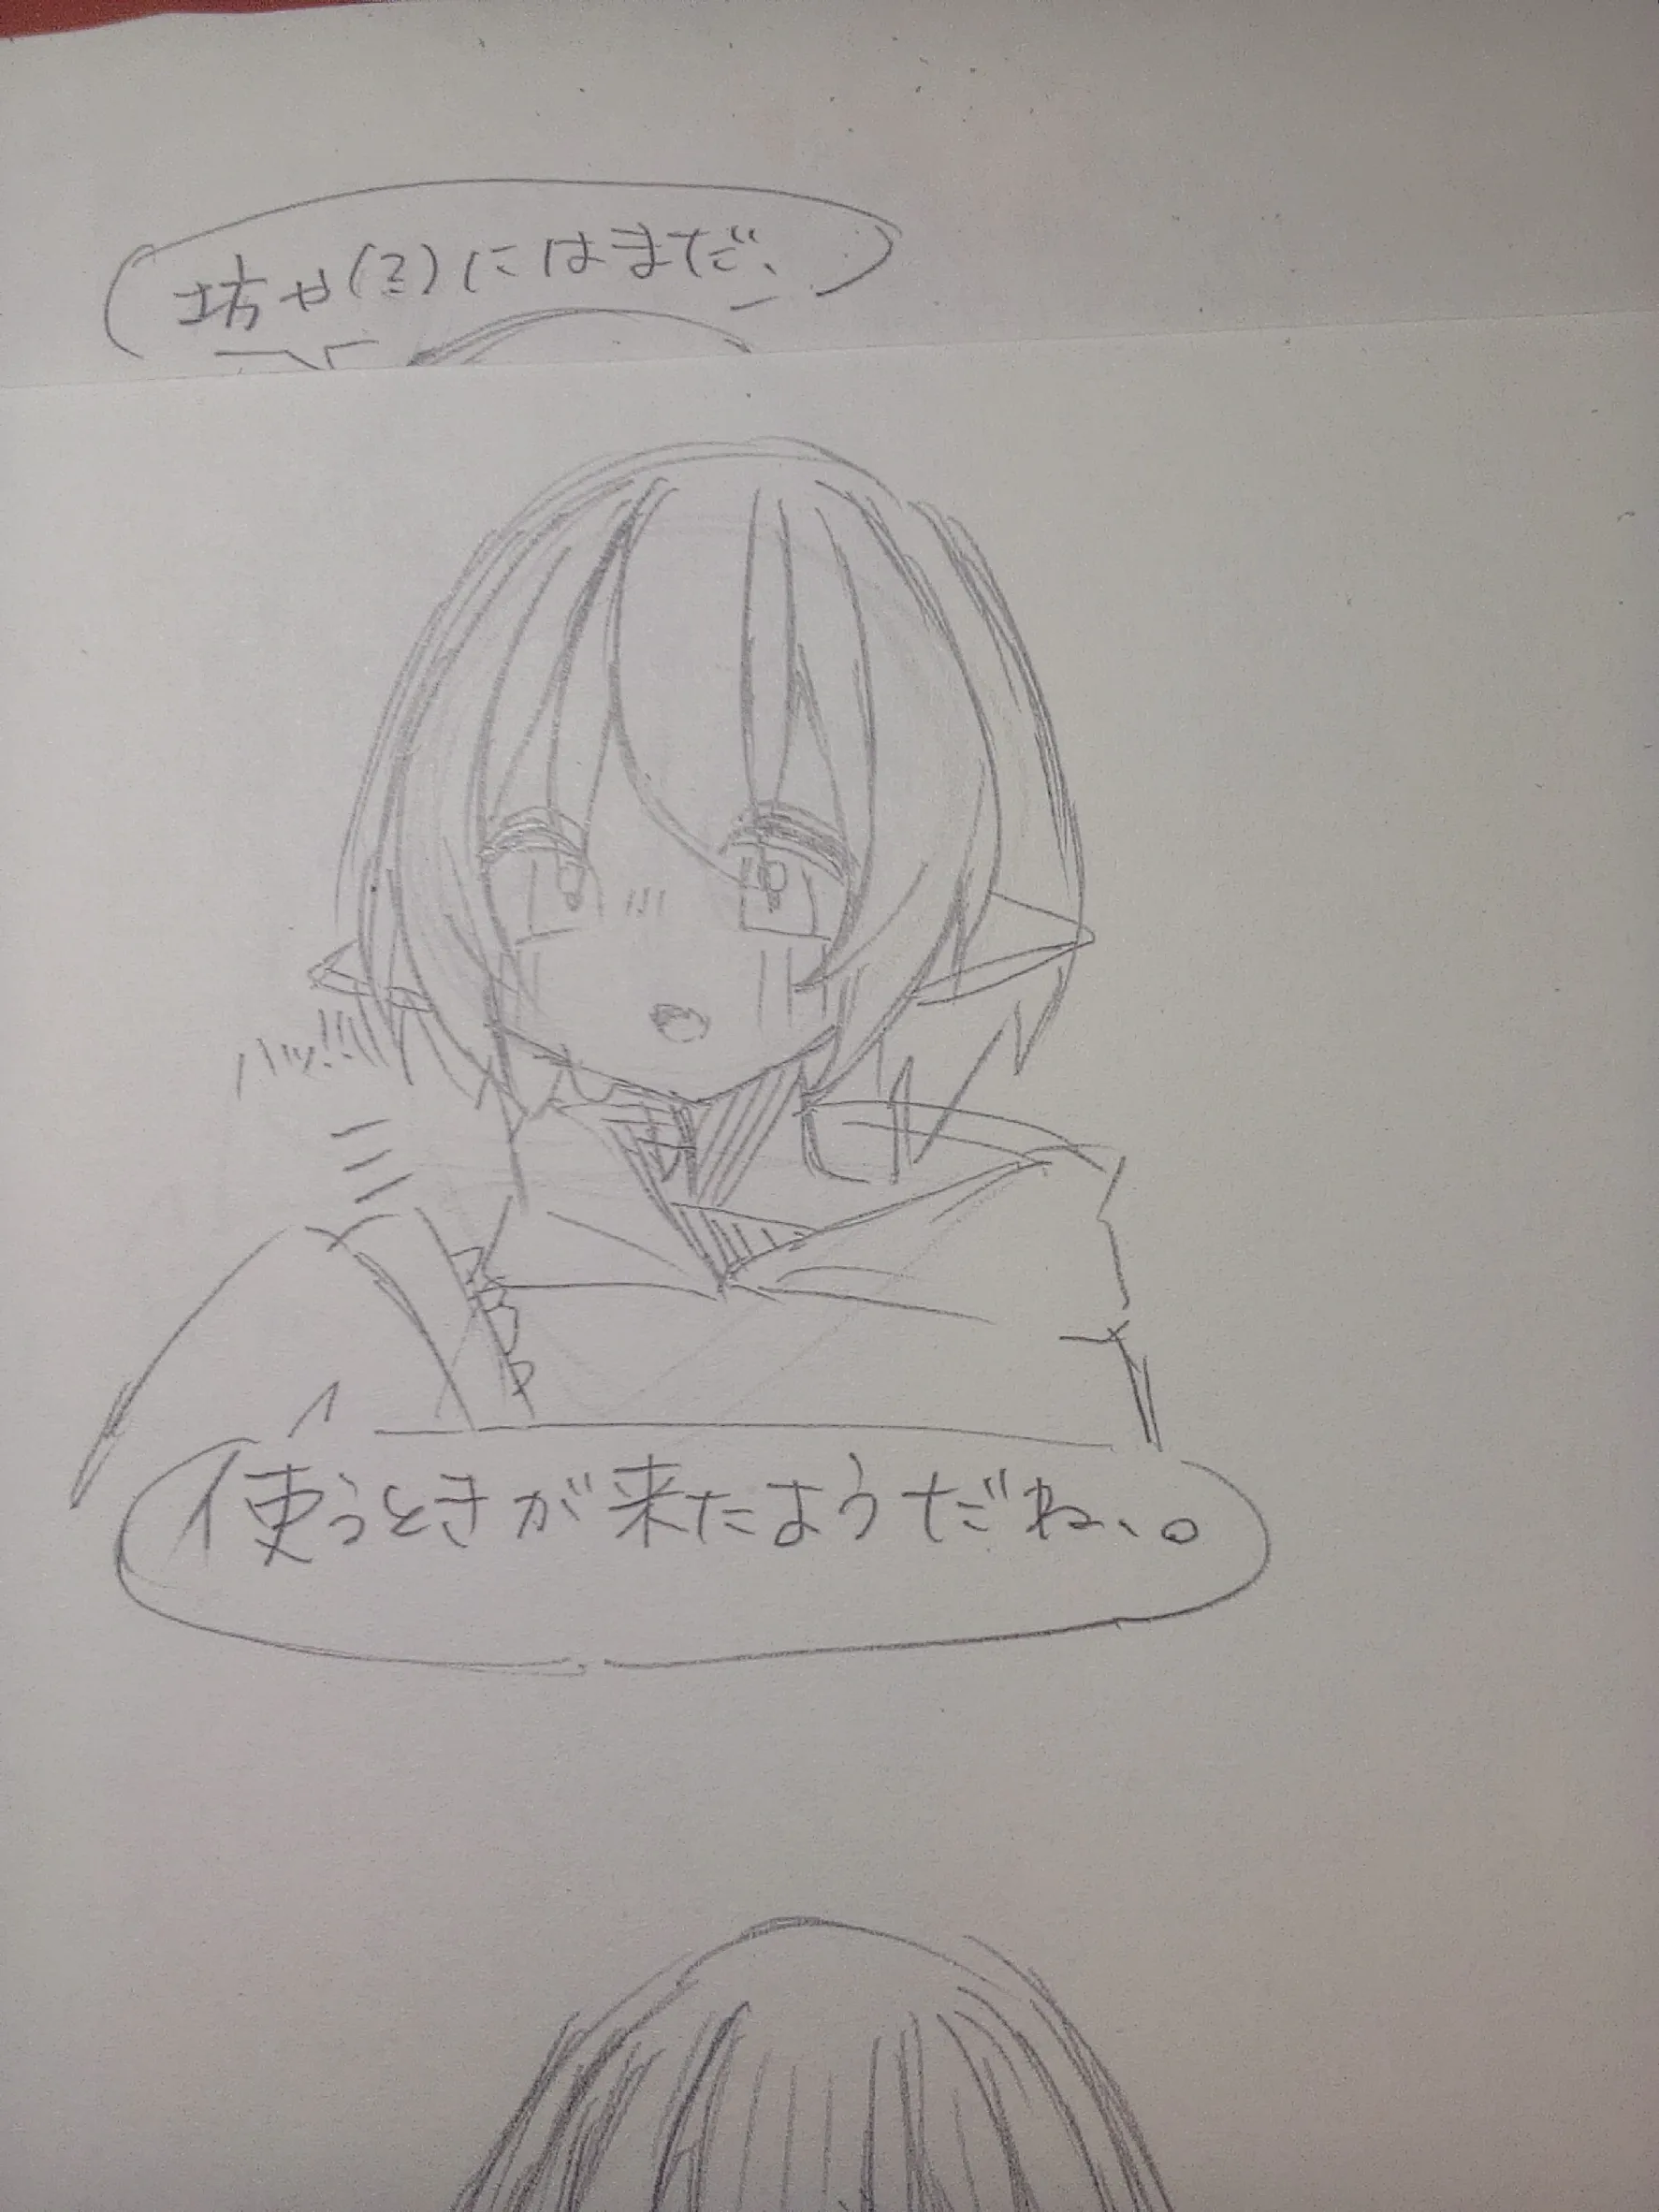 坊や(?)にはまだ、
ハッ!!
使うときが来たようだね、。